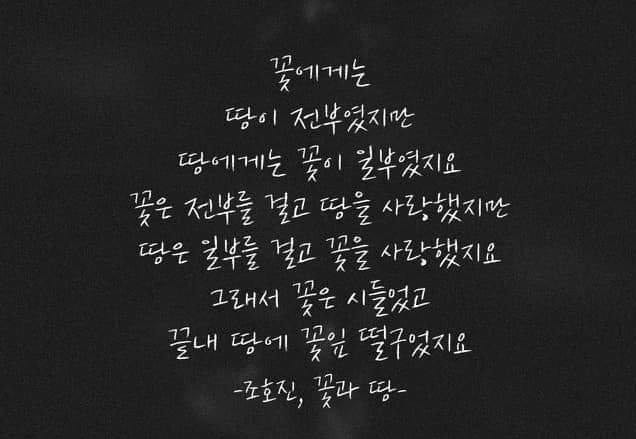 꽃에게는
땅이 전부였지만
땅에게는 꽃이 일부였지요
꽃은 전부를 걸고 땅을 사랑했지만
땅은 일부를 걸고 꽃을 사랑했지요
그래서 꽃은 시들었고
끝내 땅에 꽃잎 떨구었지요
-조호진, 꽃과 땅-